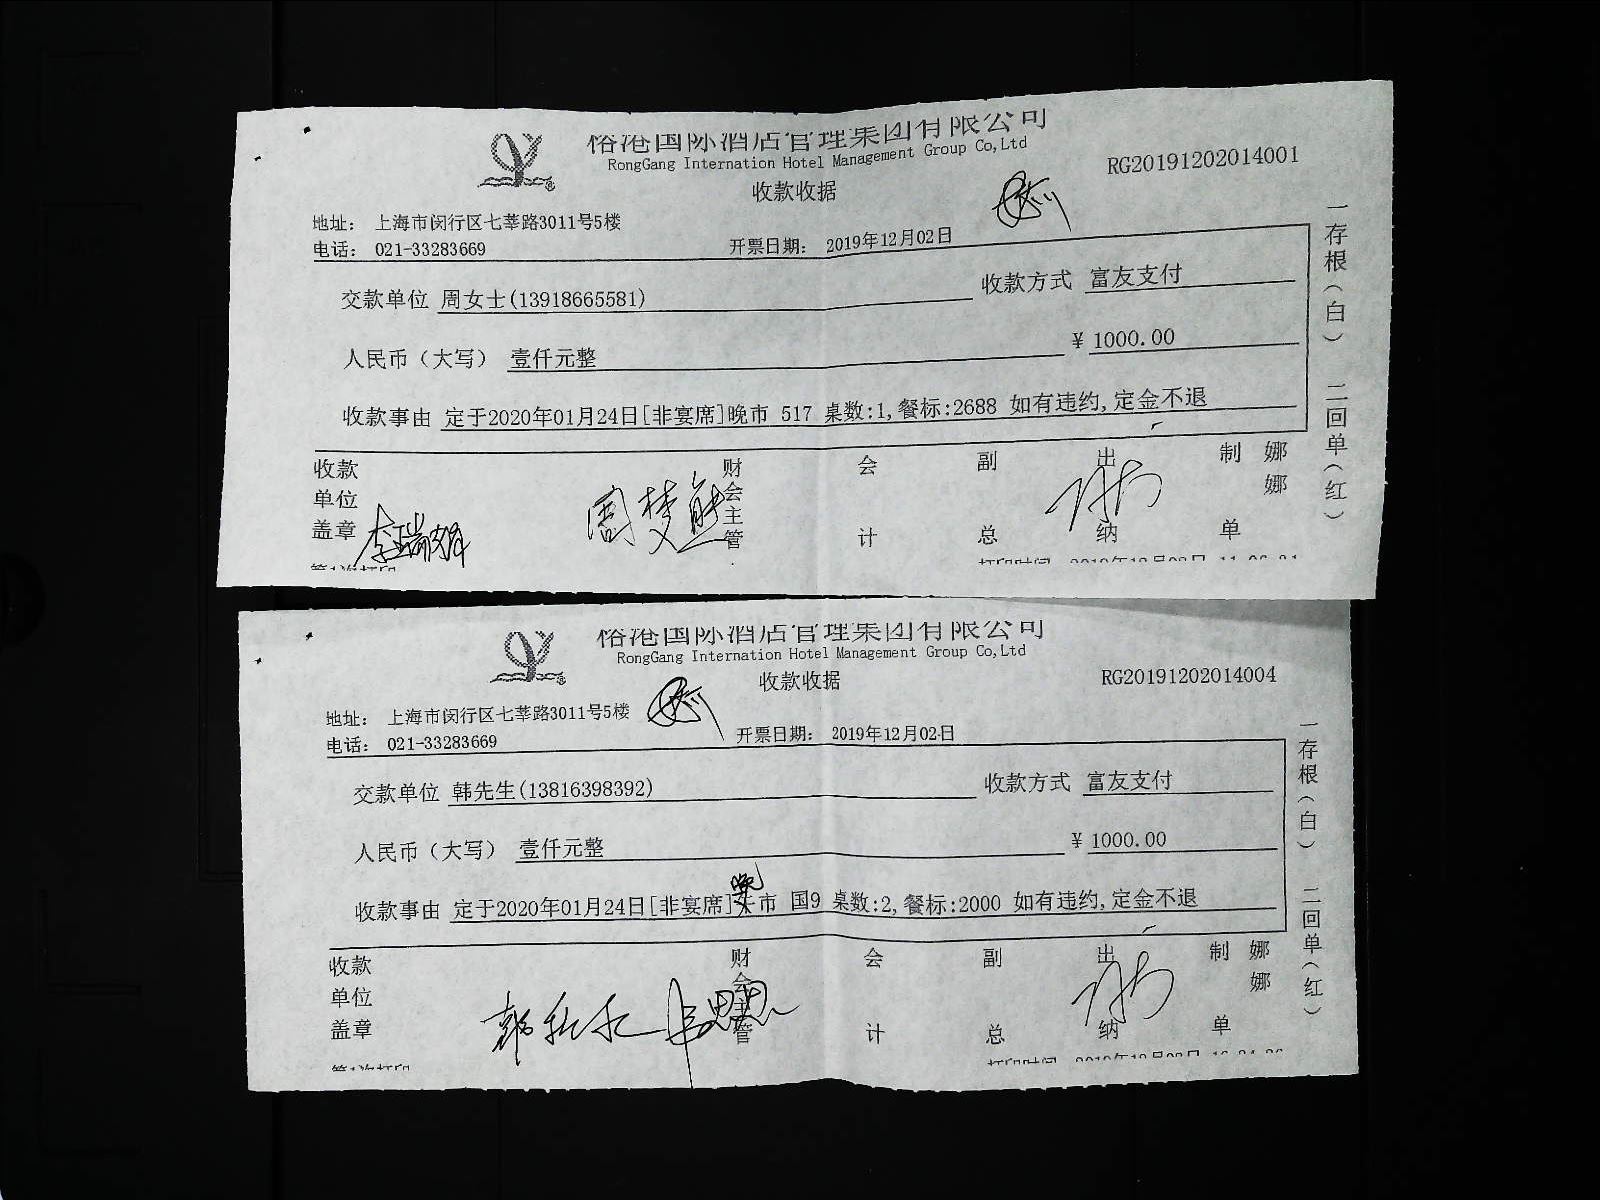 裕港国际酒店管理集团有限公司
RongGang Internation Hotel Management Group Co,Ltd
RG20191202014001
收款收据
地址： 上海市闵行区七莘路3011号5楼
电话： 021-33283669
开票日期： 2019年12月02日
交款单位 周女士(13918665581)
收款方式 富友支付
人民币（大写） 壹仟元整
¥ 1000.00
收款事由 定于2020年01月24日[非宴席]晚市 517 桌数:1,餐标:2688 如有违约,定金不退
一存根（白） 二回单（红）
收款单位盖章
财会主管
会计
副总
出纳
制单
娜娜
周梦熊
第1次打印
打印时间
裕港国际酒店管理集团有限公司
RongGang Internation Hotel Management Group Co,Ltd
RG20191202014004
收款收据
地址： 上海市闵行区七莘路3011号5楼
电话： 021-33283669
开票日期： 2019年12月02日
交款单位 韩先生(13816398392)
收款方式 富友支付
人民币（大写） 壹仟元整
¥ 1000.00
收款事由 定于2020年01月24日[非宴席]晚市 国9 桌数:2,餐标:2000 如有违约,定金不退
一存根（白） 二回单（红）
收款单位盖章
财会主管
会计
副总
出纳
制单
娜娜
第1次打印
打印时间